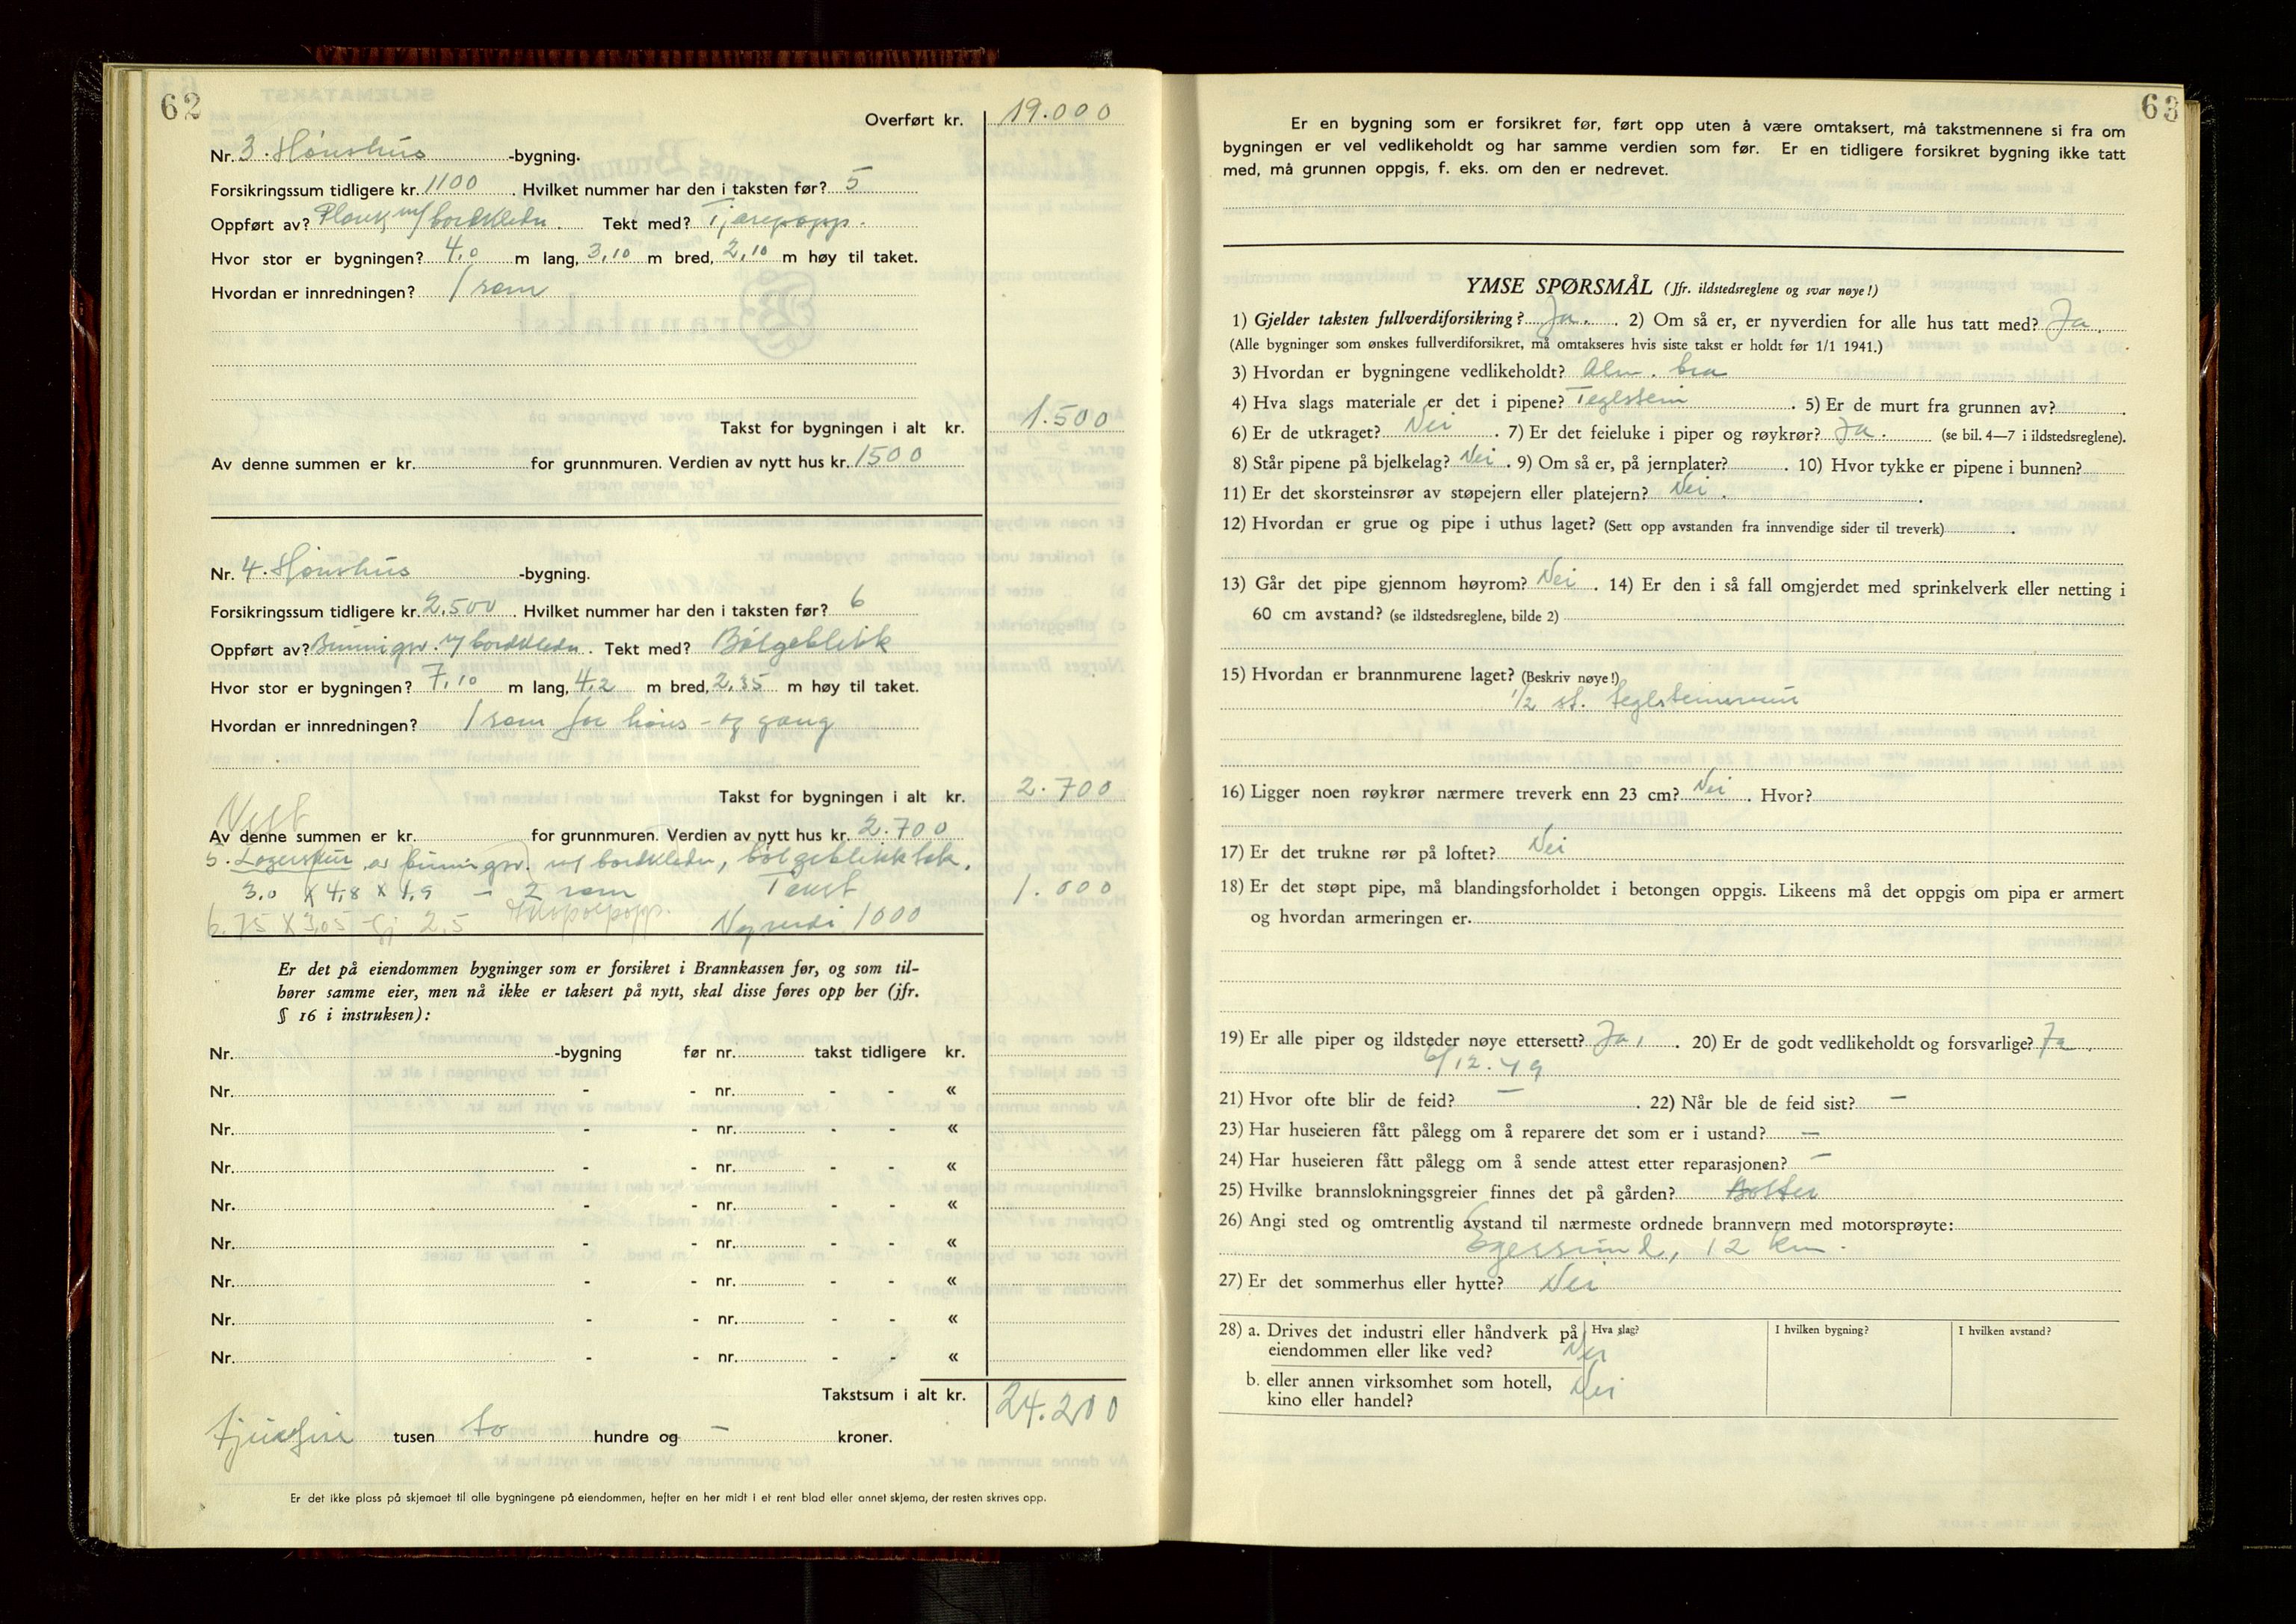 62
Overført kr. 19.000
Nr. 3. Hønshus -bygning.
Forsikringssum tidligere kr. 1100. Hvilket nummer har den i taksten før? 5
Oppført av? Plank m/ bordkledn. Tekt med? Tjærepapp.
Hvor stor er bygningen? 4,0 m lang, 3,10 m bred, 2,10 m høy til taket.
Hvordan er innredningen? 1 rom
Takst for bygningen i alt kr. 1.500
Av denne summen er kr. for grunnmuren. Verdien av nytt hus kr. 1500
Nr. 4. Hønshus -bygning.
Forsikringssum tidligere kr. 2.500. Hvilket nummer har den i taksten før? 6
Oppført av? Binningsv. m/ bordkledn. Tekt med? Bølgeblikk
Hvor stor er bygningen? 7,10 m lang, 4,2 m bred, 2,35 m høy til taket.
Hvordan er innredningen? 1 rom for høns - og gang
Takst for bygningen i alt kr. 2.700
Vest
Av denne summen er kr. for grunnmuren. Verdien av nytt hus kr. 2.700
5. Lagerskur av binningsv. m/ bordkledn, bølgeblikktak.
3,0 x 4,8 x 1,9 - 2 rom Takst 1.000
6. 75 x 3,05 - Gj 2,5 Nyverdi 1000
Er det på eiendommen bygninger som er forsikret i Brannkassen før, og som til-
hører samme eier, men nå ikke er taksert på nytt, skal disse føres opp her (jfr.
§ 16 i instruksen):
Nr. -bygning før nr. takst tidligere kr.
Nr. - - nr. - - «
Nr. - - nr. - - «
Nr. - - nr. - - «
Nr. - - nr. - - «
Nr. - - nr. - - «
Nr. - - nr. - - «
Nr. - - nr. - - «
Nr. - - nr. - - «
Takstsum i alt kr. 24.200
Tjuefire tusen to hundre og - kroner.
Er det ikke plass på skjemaet til alle bygningene på eiendommen, hefter en her midt i et rent blad eller annet skjema, der resten skrives opp.
63
Er en bygning som er forsikret før, ført opp uten å være omtaksert, må takstmennene si fra om
bygningen er vel vedlikeholdt og har samme verdien som før. Er en tidligere forsikret bygning ikke tatt
med, må grunnen oppgis, f. eks. om den er nedrevet.
YMSE SPØRSMÅL (Jfr. ildstedsreglene og svar nøye!)
1) Gjelder taksten fullverdiforsikring? Ja. 2) Om så er, er nyverdien for alle hus tatt med? Ja.
(Alle bygninger som ønskes fullverdiforsikret, må omtakseres hvis siste takst er holdt før 1/1 1941.)
3) Hvordan er bygningene vedlikeholdt? Alm. bra
4) Hva slags materiale er det i pipene? Teglstein. 5) Er de murt fra grunnen av?
6) Er de utkraget? Nei. 7) Er det feieluke i piper og røykrør? Ja. (se bil. 4—7 i ildstedsreglene).
8) Står pipene på bjelkelag? Nei. 9) Om så er, på jernplater? . 10) Hvor tykke er pipene i bunnen?
11) Er det skorsteinsrør av støpejern eller platejern? Nei.
12) Hvordan er grue og pipe i uthus laget? (Sett opp avstanden fra innvendige sider til treverk)
13) Går det pipe gjennom høyrom? Nei. 14) Er den i så fall omgjerdet med sprinkelverk eller netting i
60 cm avstand? (se ildstedsreglene, bilde 2)
15) Hvordan er brannmurene laget? (Beskriv nøye!)
1/2 st. teglsteinsmur
16) Ligger noen røykrør nærmere treverk enn 23 cm? Nei. Hvor?
17) Er det trukne rør på loftet? Nei
18) Er det støpt pipe, må blandingsforholdet i betongen oppgis. Likeens må det oppgis om pipa er armert
og hvordan armeringen er.
19) Er alle piper og ildsteder nøye ettersett? Ja, . 20) Er de godt vedlikeholdt og forsvarlige? Ja.
6/12.49
21) Hvor ofte blir de feid? - . 22) Når ble de feid sist? -
23) Har huseieren fått pålegg om å reparere det som er i ustand? -
24) Har huseieren fått pålegg om å sende attest etter reparasjonen? -
25) Hvilke brannslokningsgreier finnes det på gården? Bøtter
26) Angi sted og omtrentlig avstand til nærmeste ordnede brannvern med motorsprøyte:
Egersund, 12 km.
27) Er det sommerhus eller hytte? Nei
28) a. Drives det industri eller håndverk på Hva slag? I hvilken bygning? I hvilken avstand?
eiendommen eller like ved? Nei
b. eller annen virksomhet som hotell, Nei
kino eller handel?